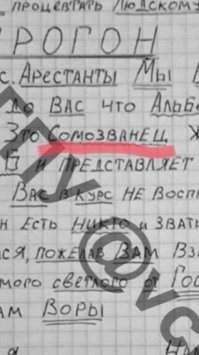 процветать Людскому
ПРОГОН
с. Арестанты Мы В
до Вас что Альб
Это Сомозванец Ж
Б и представляет
Вас в курс не восп
н есть Никто и звать
ся, пожелав Вам Вз
мого светлого от Гос
ам Воры